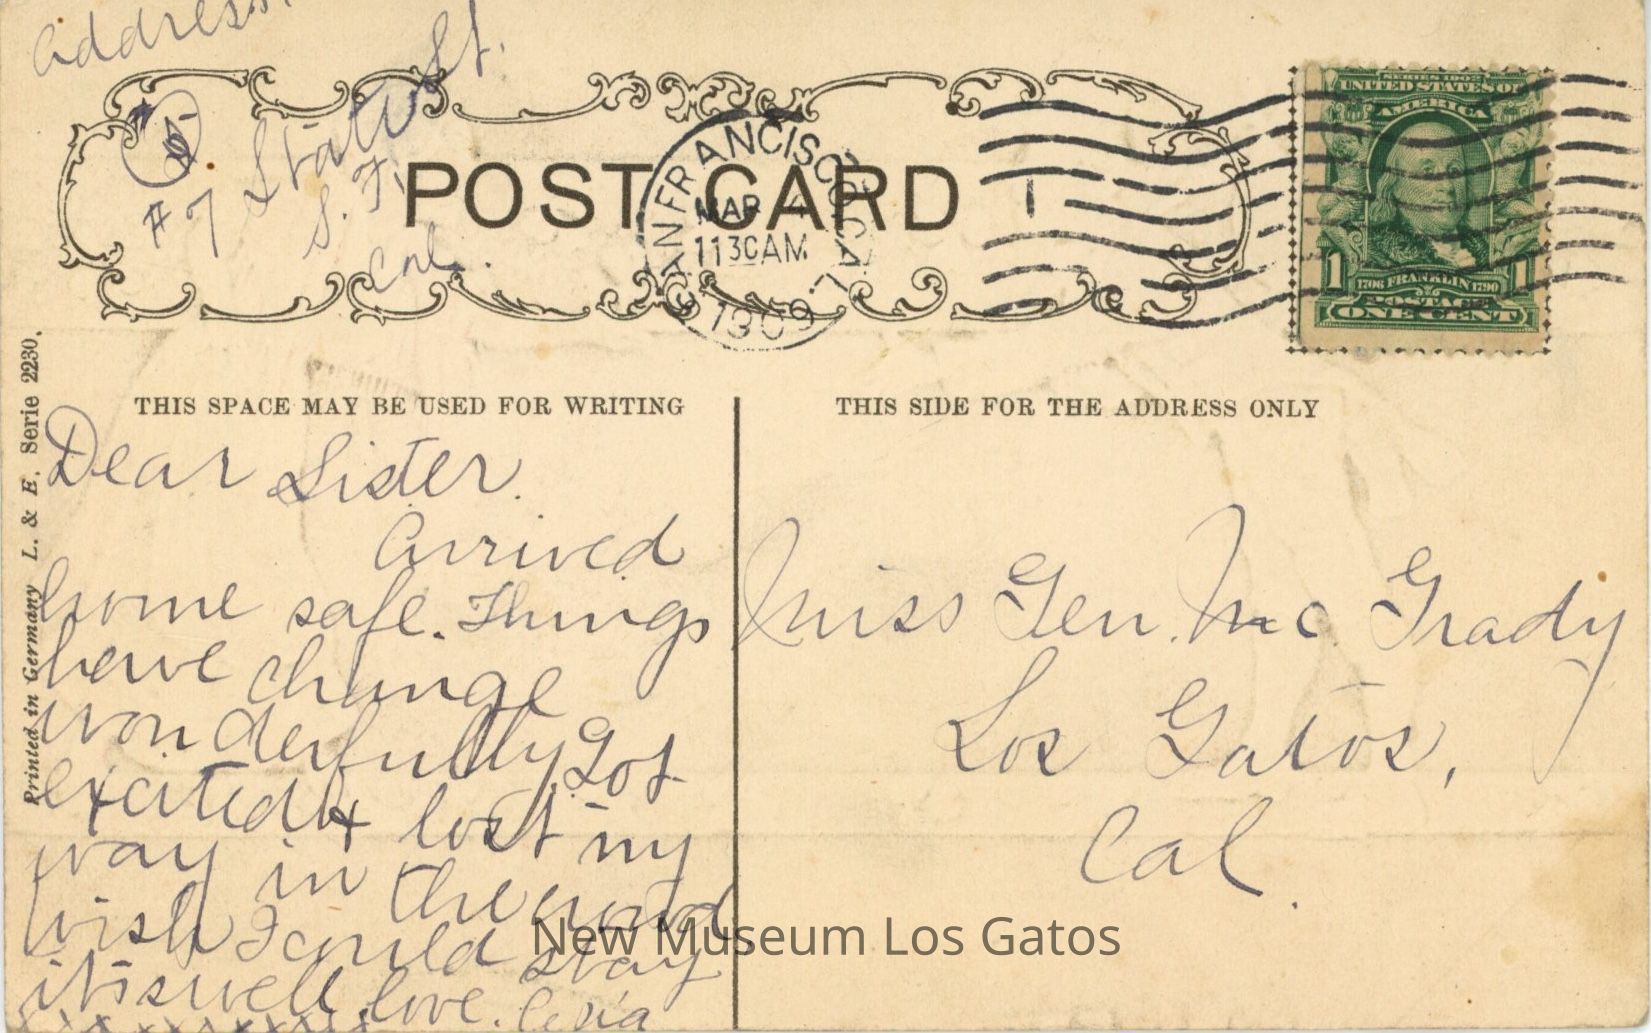 Address
#7 State St.
S. F.
Cal.
POST CARD
SAN FRANCISCO, CAL.
MAR 4
1130AM
1909
1
SERIES 1902
UNITED STATES OF
AMERICA
1 1706 FRANKLIN 1790 1
POSTAGE
ONE CENT
Printed in Germany L. & E. Serie 2230.
THIS SPACE MAY BE USED FOR WRITING
Dear Sister.
Arrived
home safe. Things
have change
wonderfully Got
excited & lost my
way in the crowd
wish I could stay
it is well love.
xxxxxxxxxx
THIS SIDE FOR THE ADDRESS ONLY
Miss Gen. Mc Grady
Los Gatos,
Cal.
New Museum Los Gatos